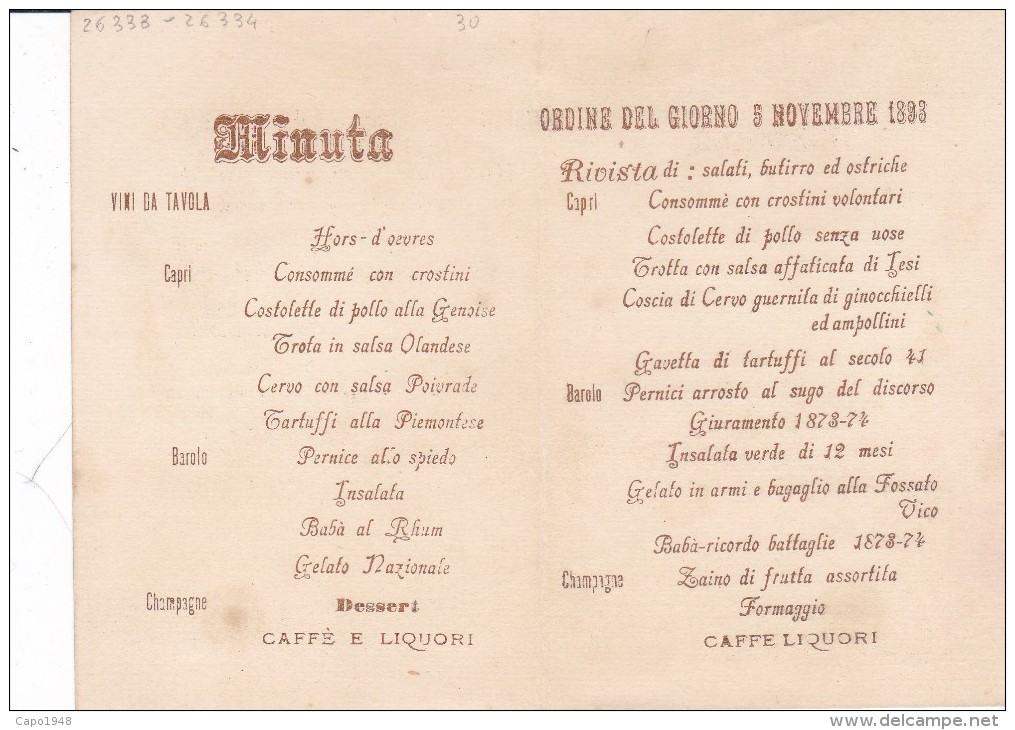 26333 - 26334
30
Minuta
VINI DA TAVOLA
Hors-d'oevres
Capri
Consommé con crostini
Costolette di pollo alla Genoise
Trota in salsa Olandese
Cervo con salsa Poivrade
Tartuffi alla Piemontese
Barolo
Pernice allo spiedo
Insalata
Babà al Rhum
Gelato Nazionale
Champagne
Dessert
CAFFÈ E LIQUORI
ORDINE DEL GIORNO 5 NOVEMBRE 1893
Rivista di : salati, butirro ed ostriche
Capri
Consommè con crostini volontari
Costolette di pollo senza uose
Trotta con salsa affaticata di Iesi
Coscia di Cervo guernita di ginocchielli
ed ampollini
Gavetta di tartuffi al secolo 41
Barolo
Pernici arrosto al sugo del discorso
Giuramento 1873-74
Insalata verde di 12 mesi
Gelato in armi e bagaglio alla Fossato
Vico
Babà-ricordo battaglie 1873-74
Champagne
Zaino di frutta assortita
Formaggio
CAFFE LIQUORI
Capo1948
delcampe.net